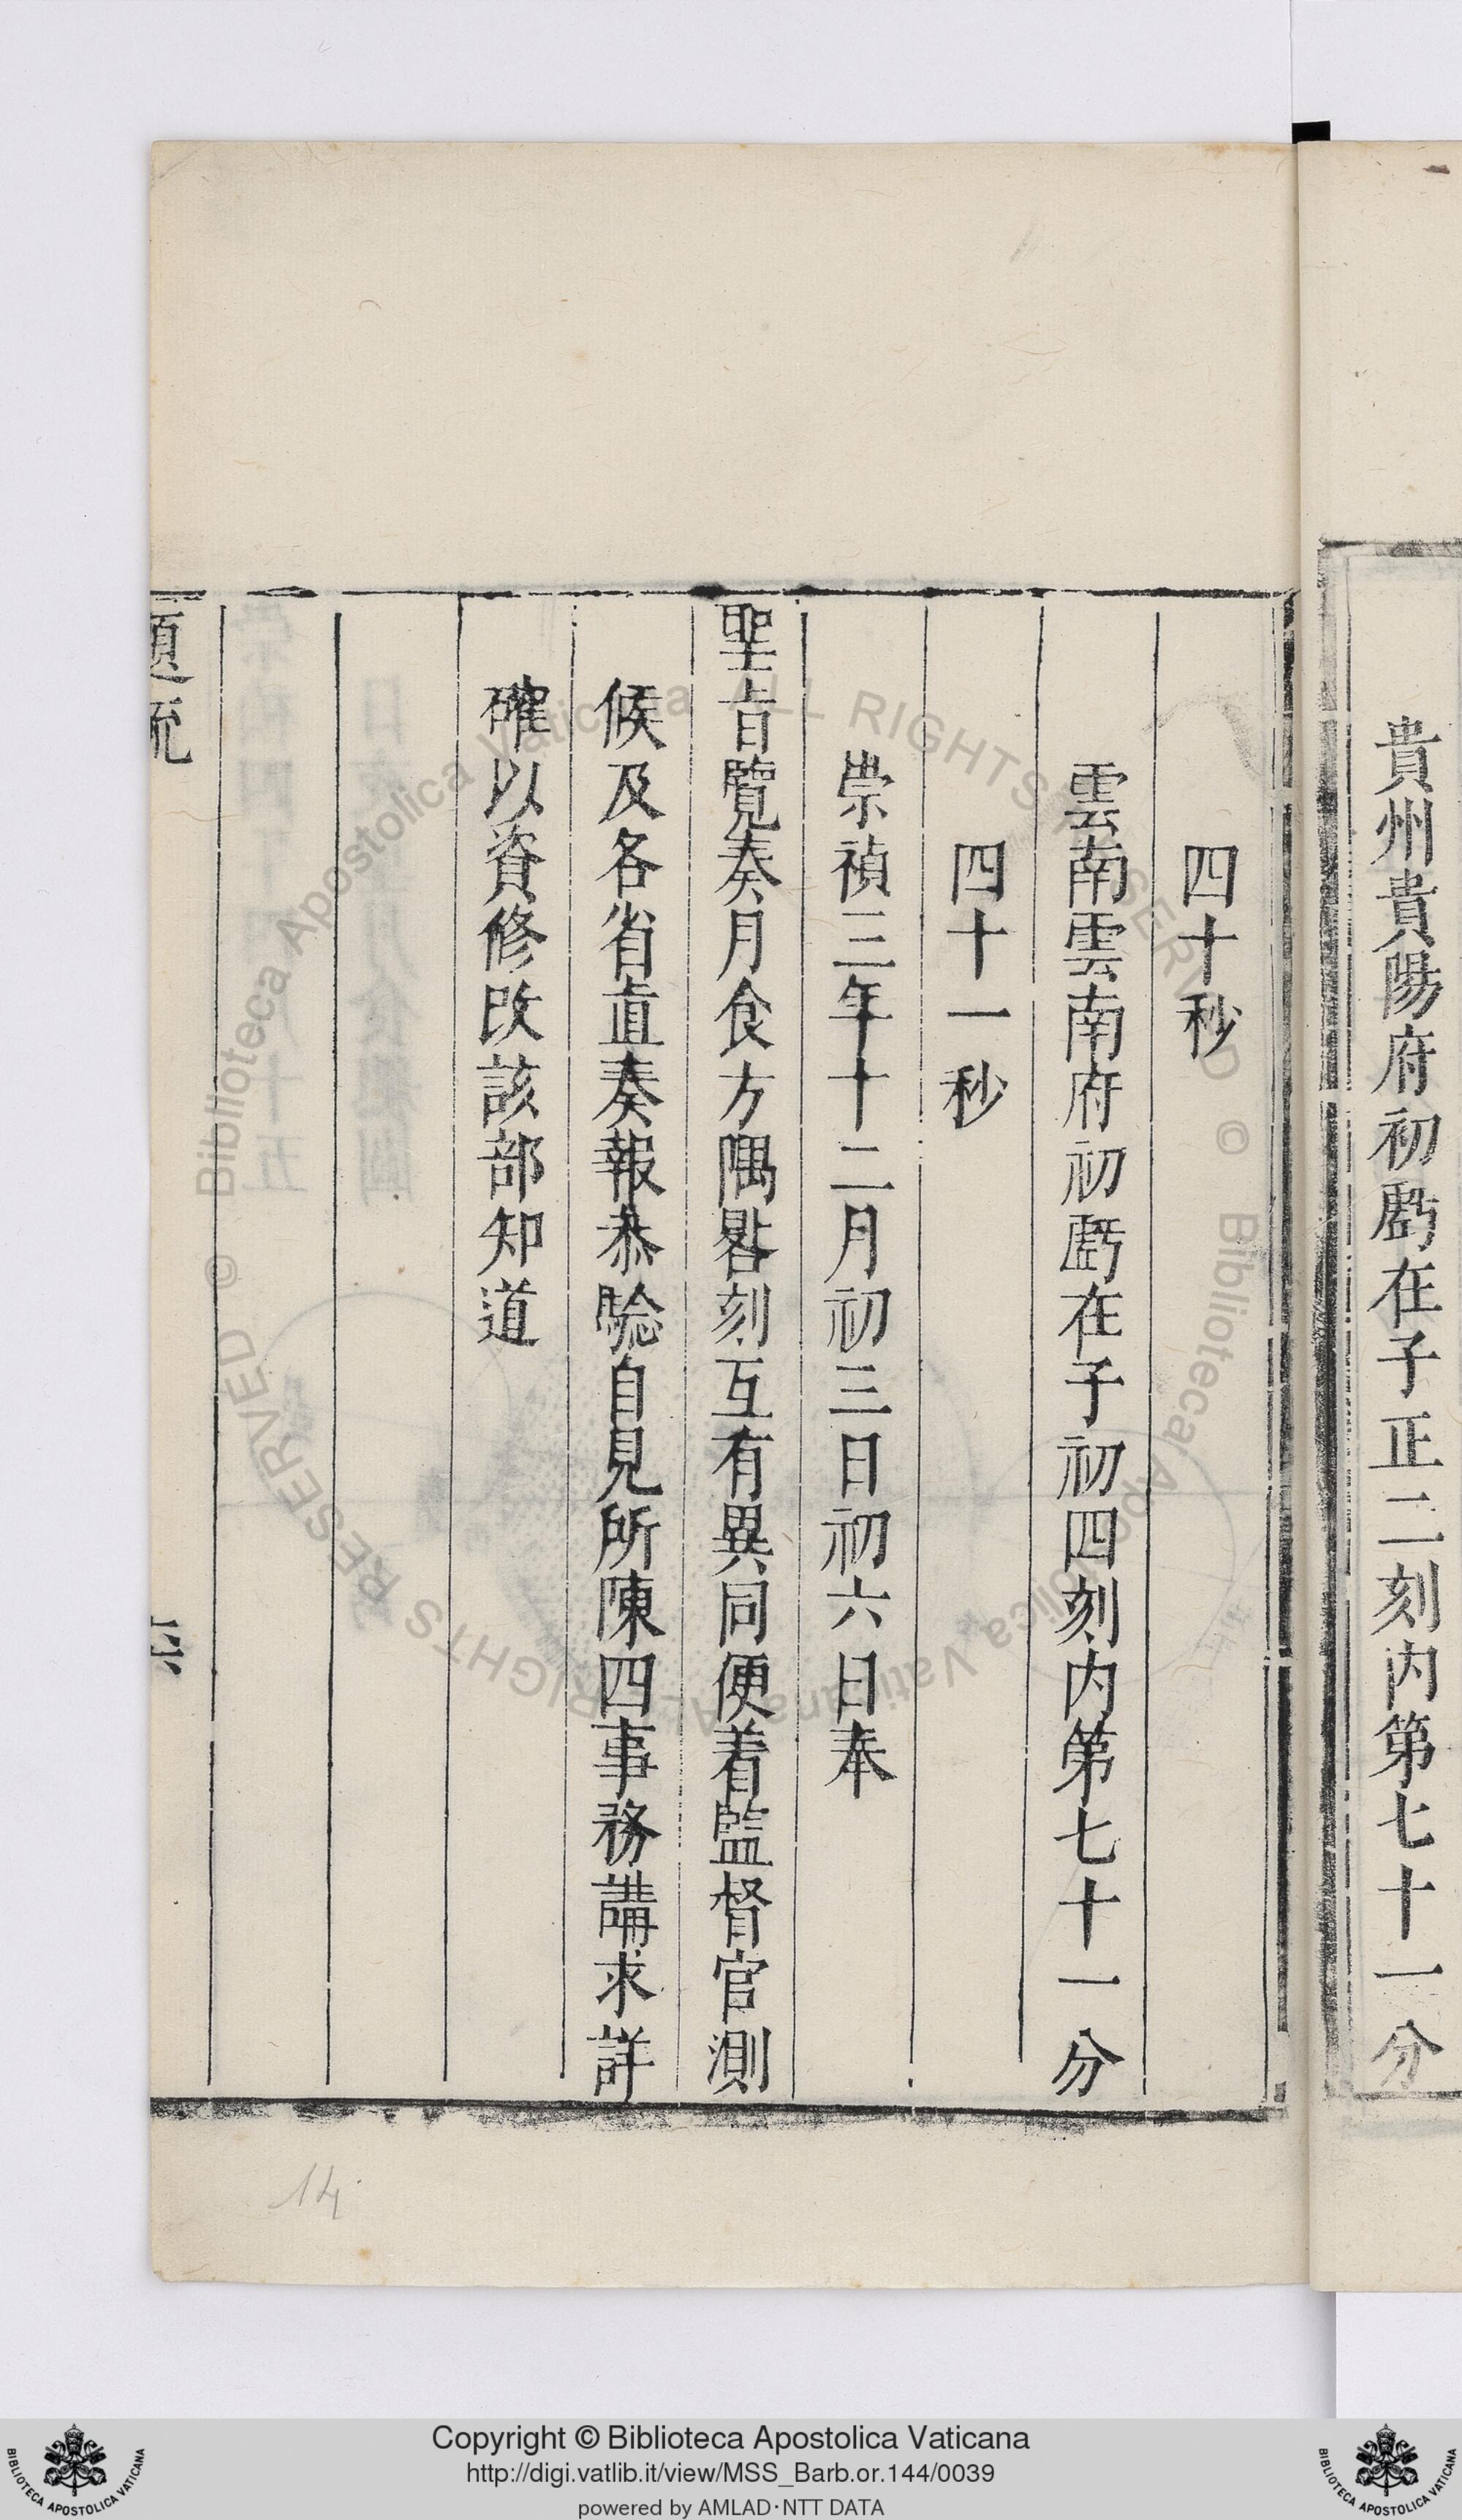 貴州貴陽府初虧在子正二刻内第七十一分
四十秒
雲南雲南府初虧在子初四刻内第七十一分
四十一秒
崇禎三年十二月初三日初六日奉
聖旨覽奏月食方隅晷刻互有異同便着監督官測
候及各省直奏報叅驗自見所陳四事務講求詳
確以資修改該部知道
14
Copyright © Biblioteca Apostolica Vaticana
http://digi.vatlib.it/view/MSS_Barb.or.144/0039
powered by AMLAD·NTT DATA
BIBLIOTECA APOSTOLICA VATICANA
BIBLIOTECA APOSTOLICA VATICANA